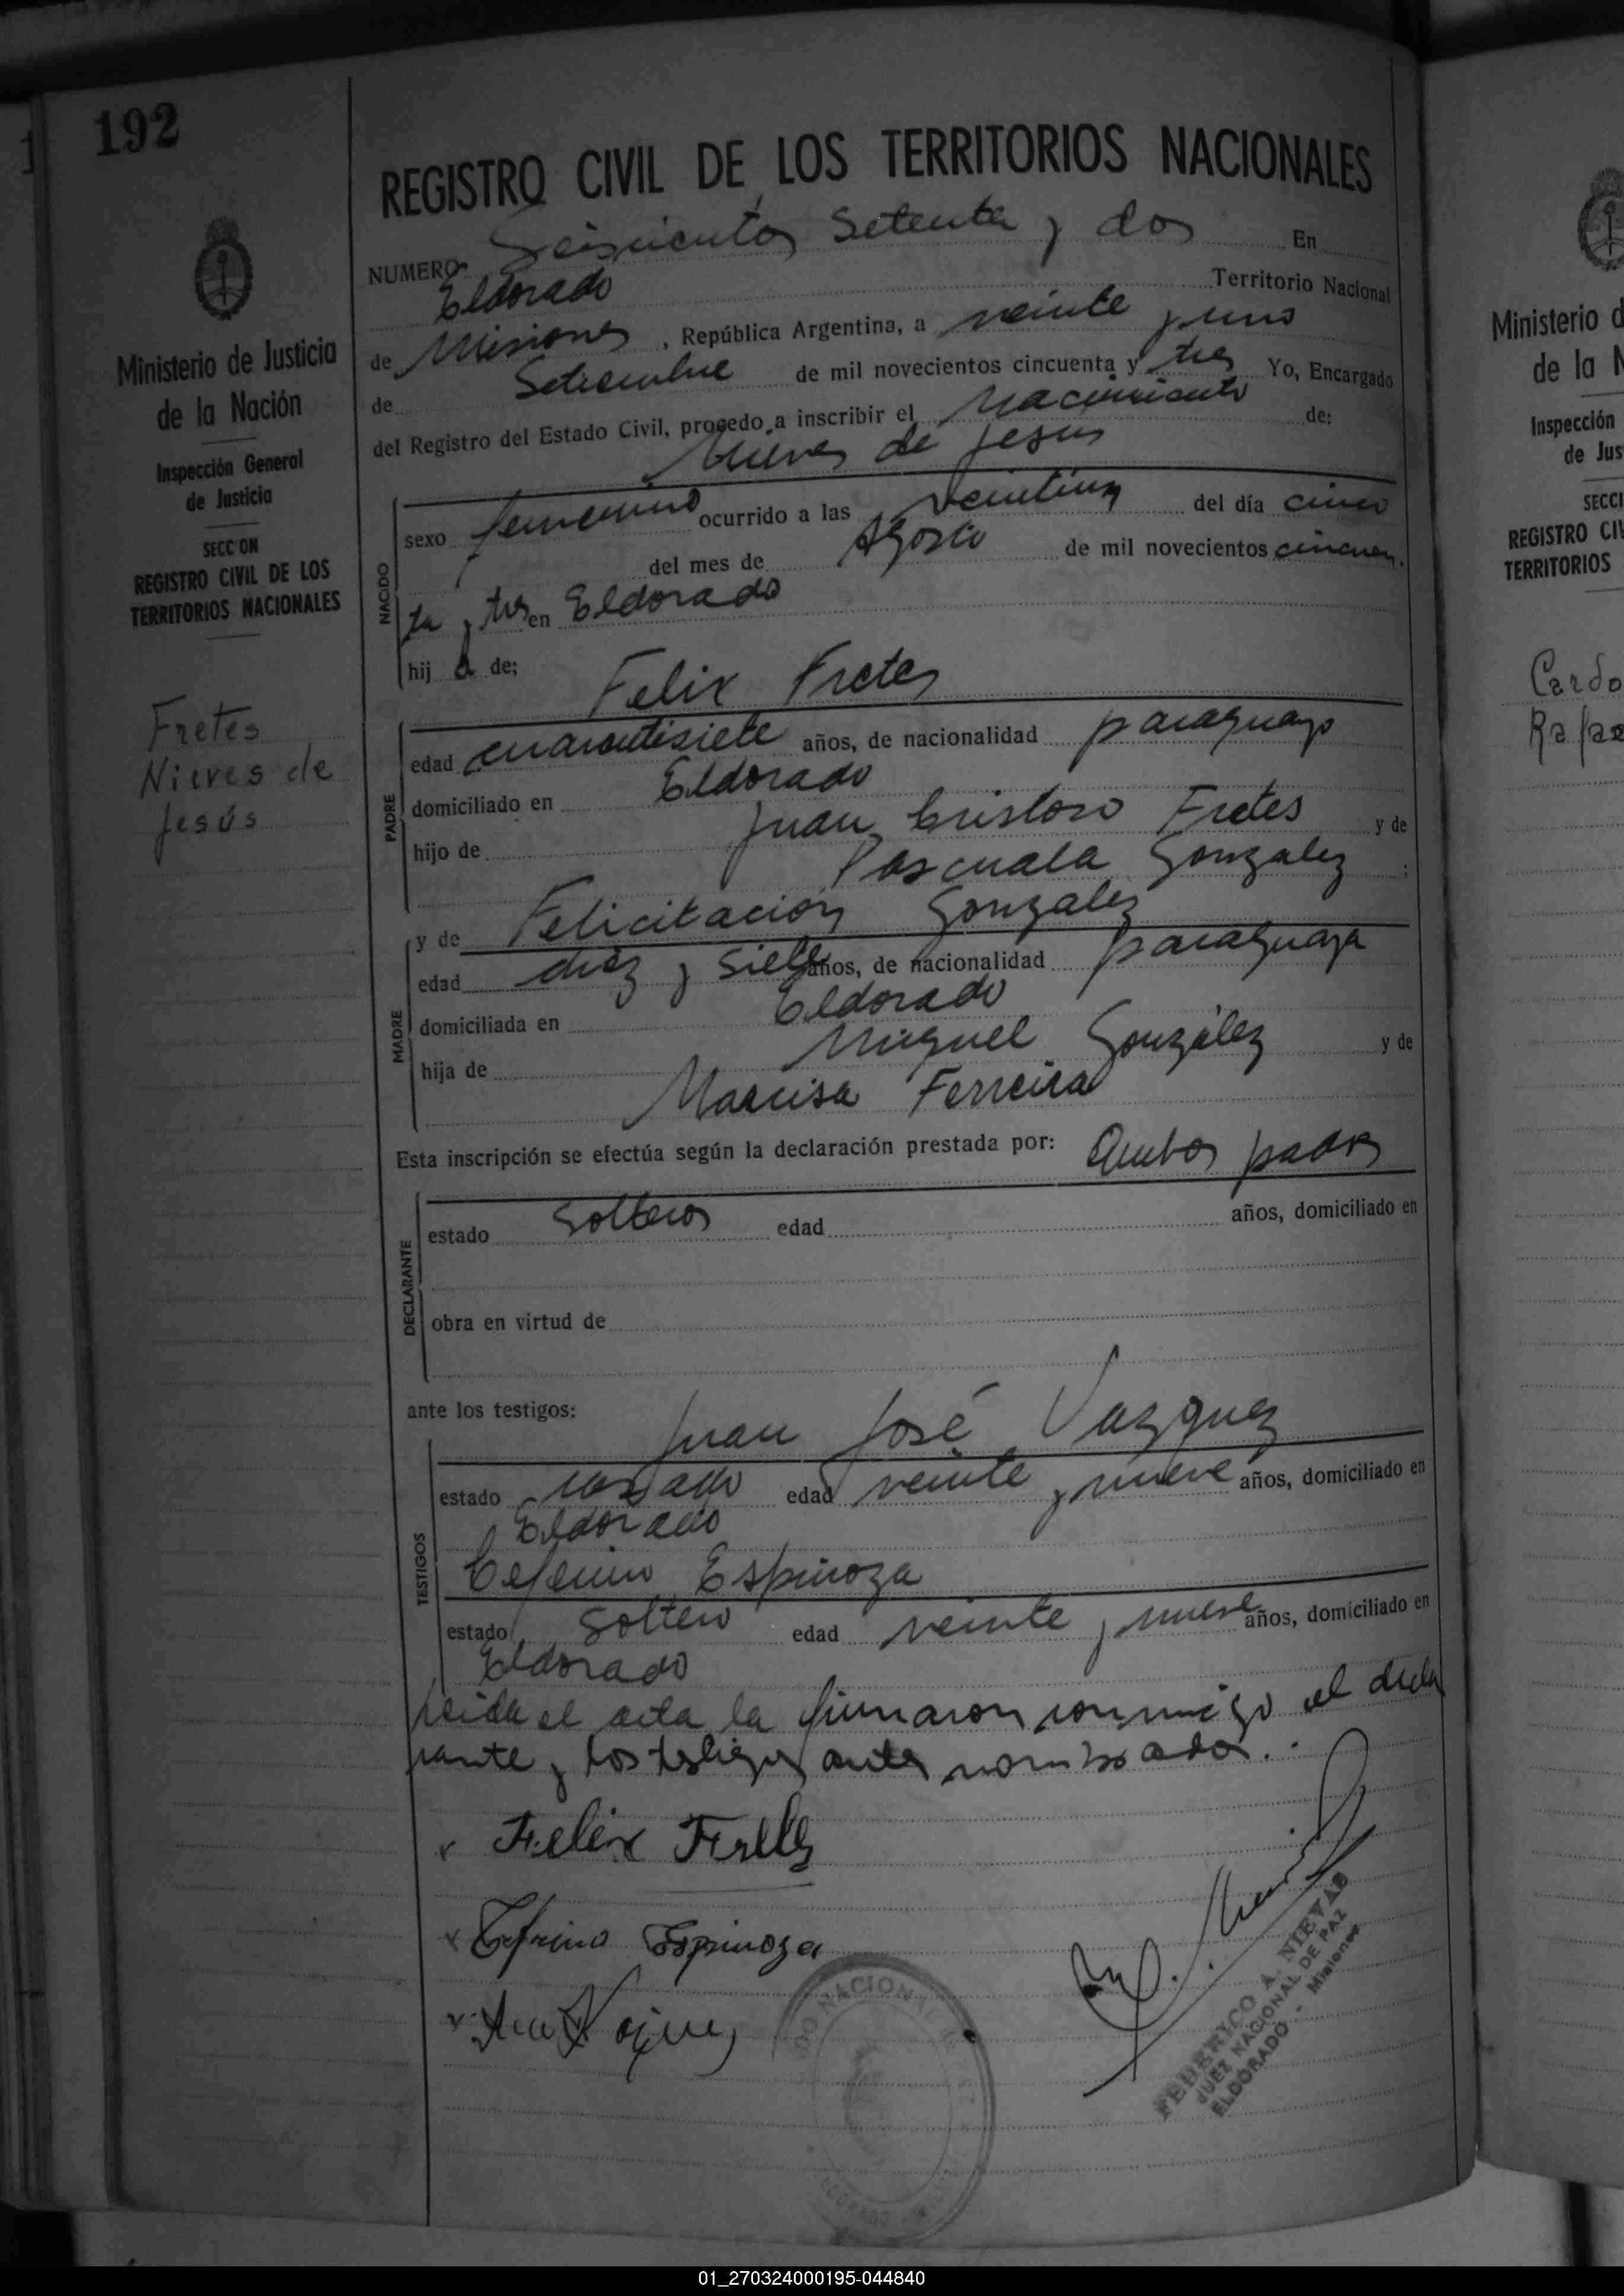 192
REGISTRO CIVIL DE LOS TERRITORIOS NACIONALES
NUMERO Seiscientos Setenta y dos En
Eldorado Territorio Nacional
de Misiones, República Argentina, a veinte y uno
de Setiembre de mil novecientos cincuenta y tres Yo, Encargado
del Registro del Estado Civil, procedo a inscribir el Nacimiento de:
Nieves de Jesus
NACIDO
sexo femenino ocurrido a las veintiuna del día cinco
del mes de Agosto de mil novecientos cincuen
ta y tres en Eldorado
hij a de;
Felix Fretes
PADRE
edad cuarentisiete años, de nacionalidad paraguayo
domiciliado en Eldorado
hijo de Juan Cristoro Fretes y de
Pascuala Gonzalez ;
y de Felicitación Gonzalez
MADRE
edad diéz y siete años, de nacionalidad paraguaya
domiciliada en Eldorado
hija de Miguel González y de
Narcisa Ferreira
Esta inscripción se efectúa según la declaración prestada por: Ambos padres
DECLARANTE
estado Solteros edad años, domiciliado en
obra en virtud de
ante los testigos:
Juan José Vazquez
TESTIGOS
estado casado edad veinte y nueve años, domiciliado en
Eldorado
Ceferino Espinoza
estado Soltero edad veinte y nueve años, domiciliado en
Eldorado
Leida el acta la firmaron conmigo el decla
rante y los testigos antes nombrados.
Felix Fretes
Ceferino Espinoza
FEDERICO A. NIEVAS
JUEZ NACIONAL DE PAZ
ELDORADO - Misiones
NACIONAL
Ministerio de Justicia
de la Nación
Inspección General
de Justicia
SECCION
REGISTRO CIVIL DE LOS
TERRITORIOS NACIONALES
Fretes
Nieves de
Jesús
Ministerio d
de la N
Inspección
de Jus
SECCI
REGISTRO CIV
TERRITORIOS
Cardo
Rafae
01_270324000195-044840